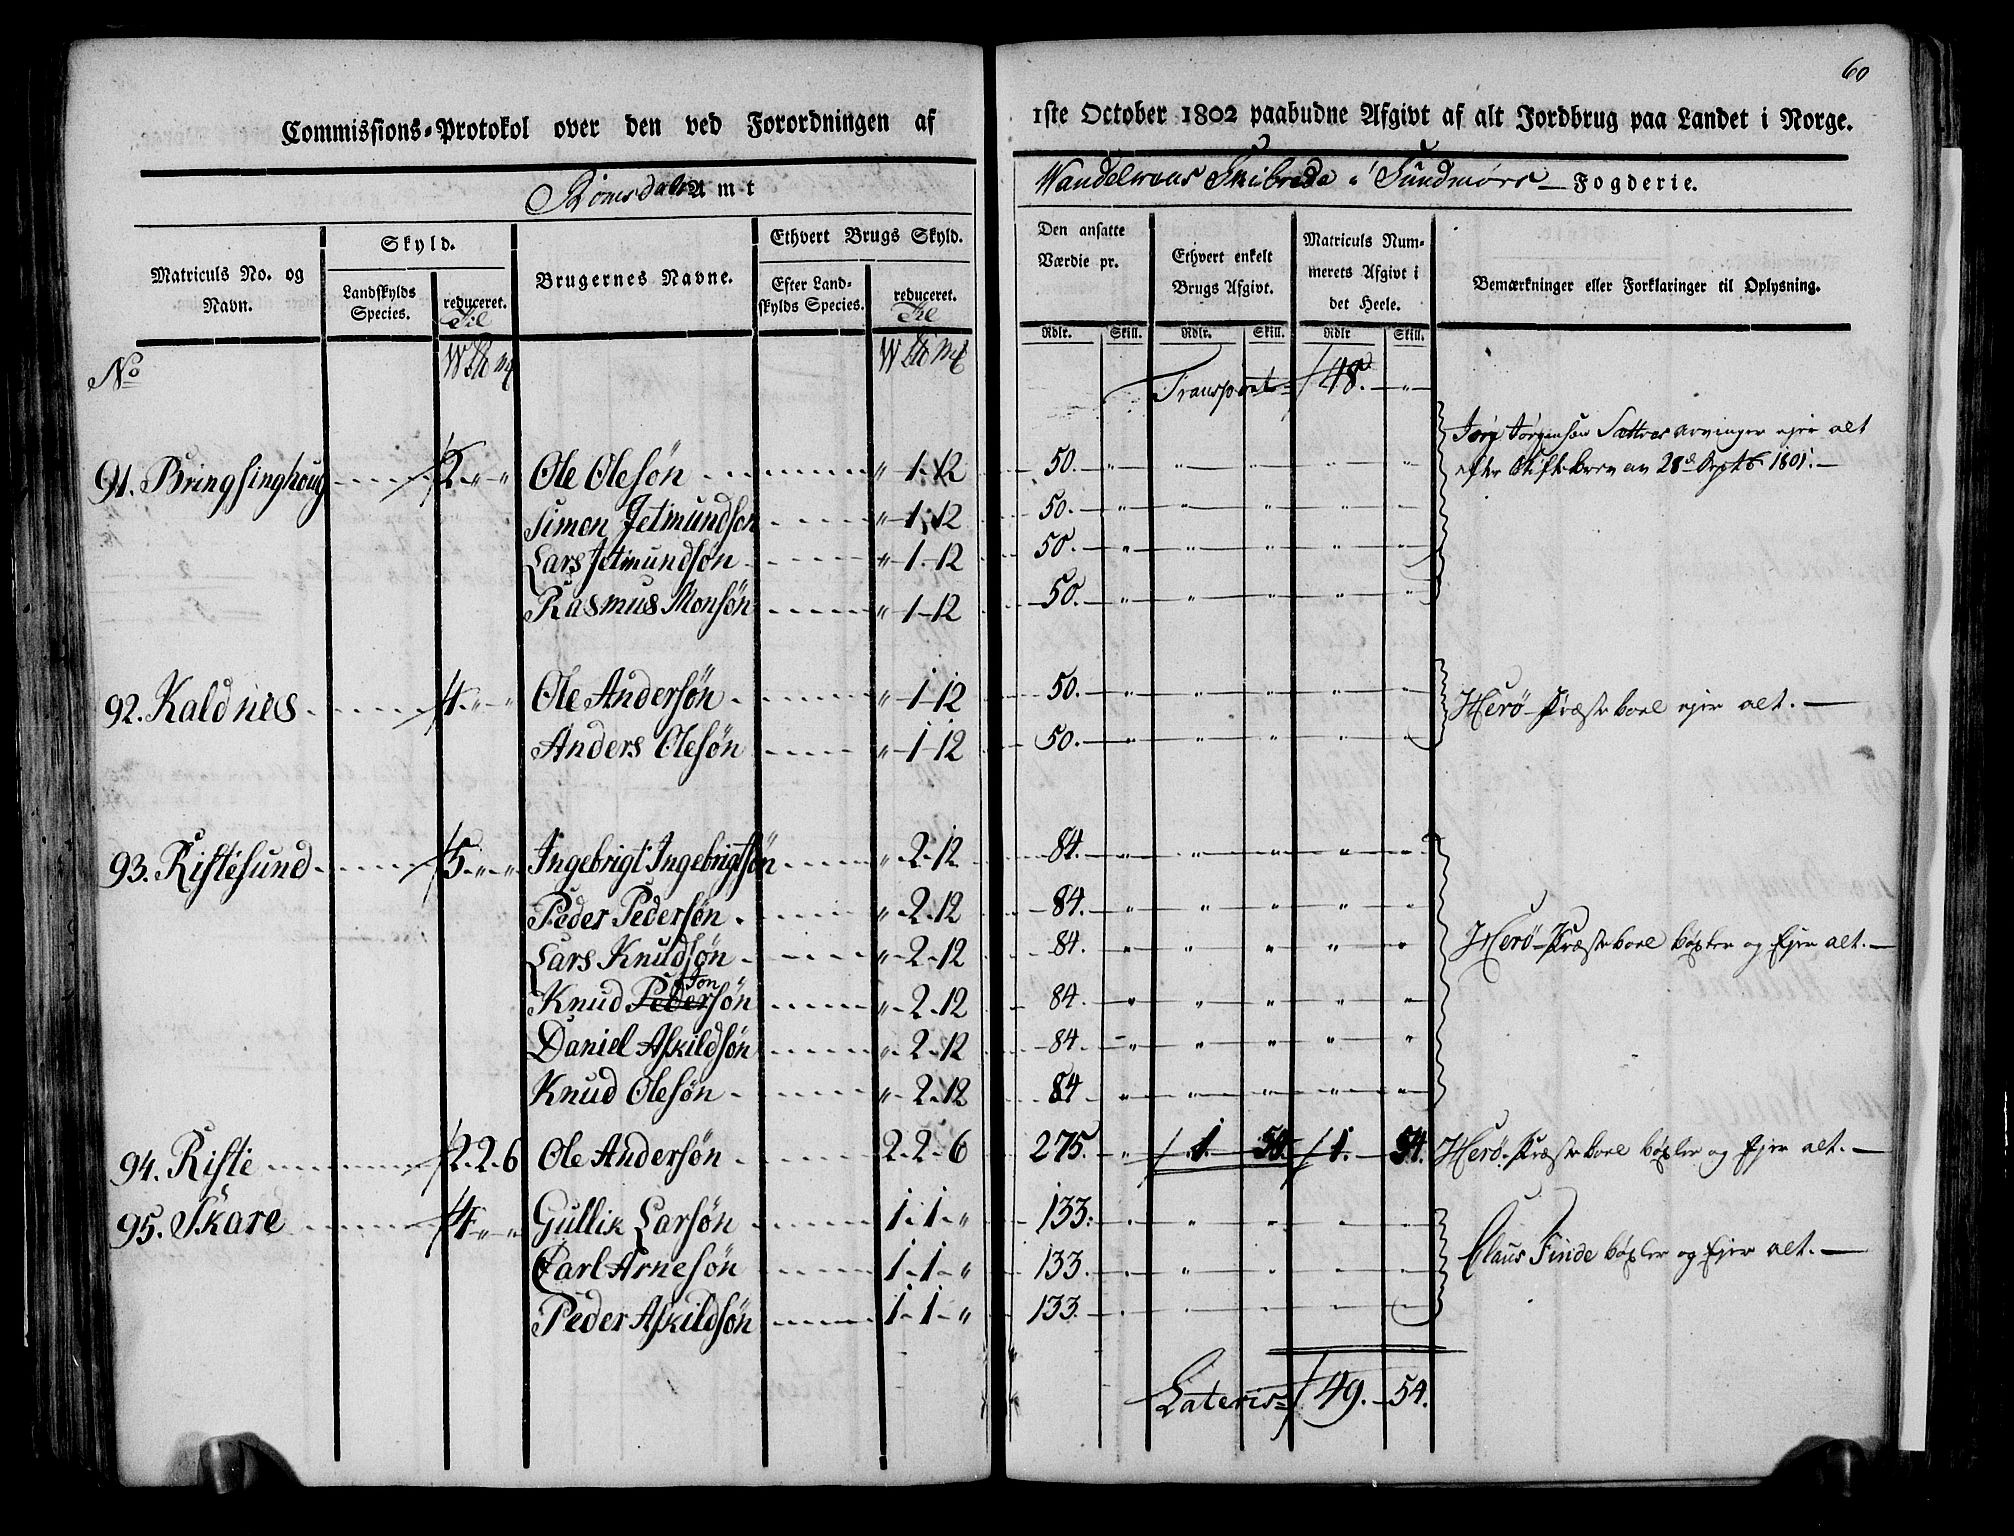 60
Commissions-Protokol over den ved Forordningen af 1ste October 1802 paabudne Afgivt af alt Jordbrug paa Landet i Norge.
Romsdals Amt Skibrede i Sundmørs Fogderie.
Matriculs No. og Navn. Skyld. Landskylds Species. reduceret. Brugernes Navne. Ethvert Brugs Skyld. Efter Landskylds Species. reduceret. Den ansatte Værdie pr. Ethvert enkelt Brugs Afgivt. Matriculs Nummerets Afgivt i det Heele. Bemærkninger eller Forklaringer til Oplysning.
Rdlr. Skill. Rdlr. Skill. Rdlr Skill.
No W
Transport 48. "
91. Bringsinghoug 2 " " Ole Olesøn " 1. 12 50. " " " " " Jørgensen Sættres Arvinger ejer alt
efter Skiftebrev av 28de Septb. 1801.
Simon Jetmundsøn " 1. 12 50. " " " " "
Lars Jetmundsøn " 1. 12 50. " " " " "
Rasmus Monsøn " 1 12 50. " " " " "
92. Kaldnes 4. " " Ole Andersøn " 1 12 50. " " " " " Herø Præsteboel ejer alt.
Anders Olesøn " 1 12 50. " " " " "
93. Ristesund 5. " " Ingebrigt Ingebrigtsøn " 2. 12 84. " " " " "
Peder Pedersøn " 2. 12 84. " " " " "
Lars Knudsøn " 2. 12 84. " " " " " Herø Præsteboel bøxler og Ejer alt.
Jon
Knud Pedersøn " 2. 12 84. " " " " "
Daniel Askildsøn " 2. 12 84. " " " " "
Knud Olesøn " 2. 12 84 " " " " "
94. Riste 2. 2. 6 Ole Andersøn 2. 2. 6 275. " 1. 54. 1. 54. Herø Præsteboel bøxler og Ejer alt.
95. Skare 4 " " Gullik Larsøn 1. 1. " 133. " " " " "
Carl Arnesøn 1. 1. " 133. " " " " " Claus Finde bøxler og Ejer alt.
Peder Askildsøn 1. 1. " 133. " " " " "
Lateris 49. 54.